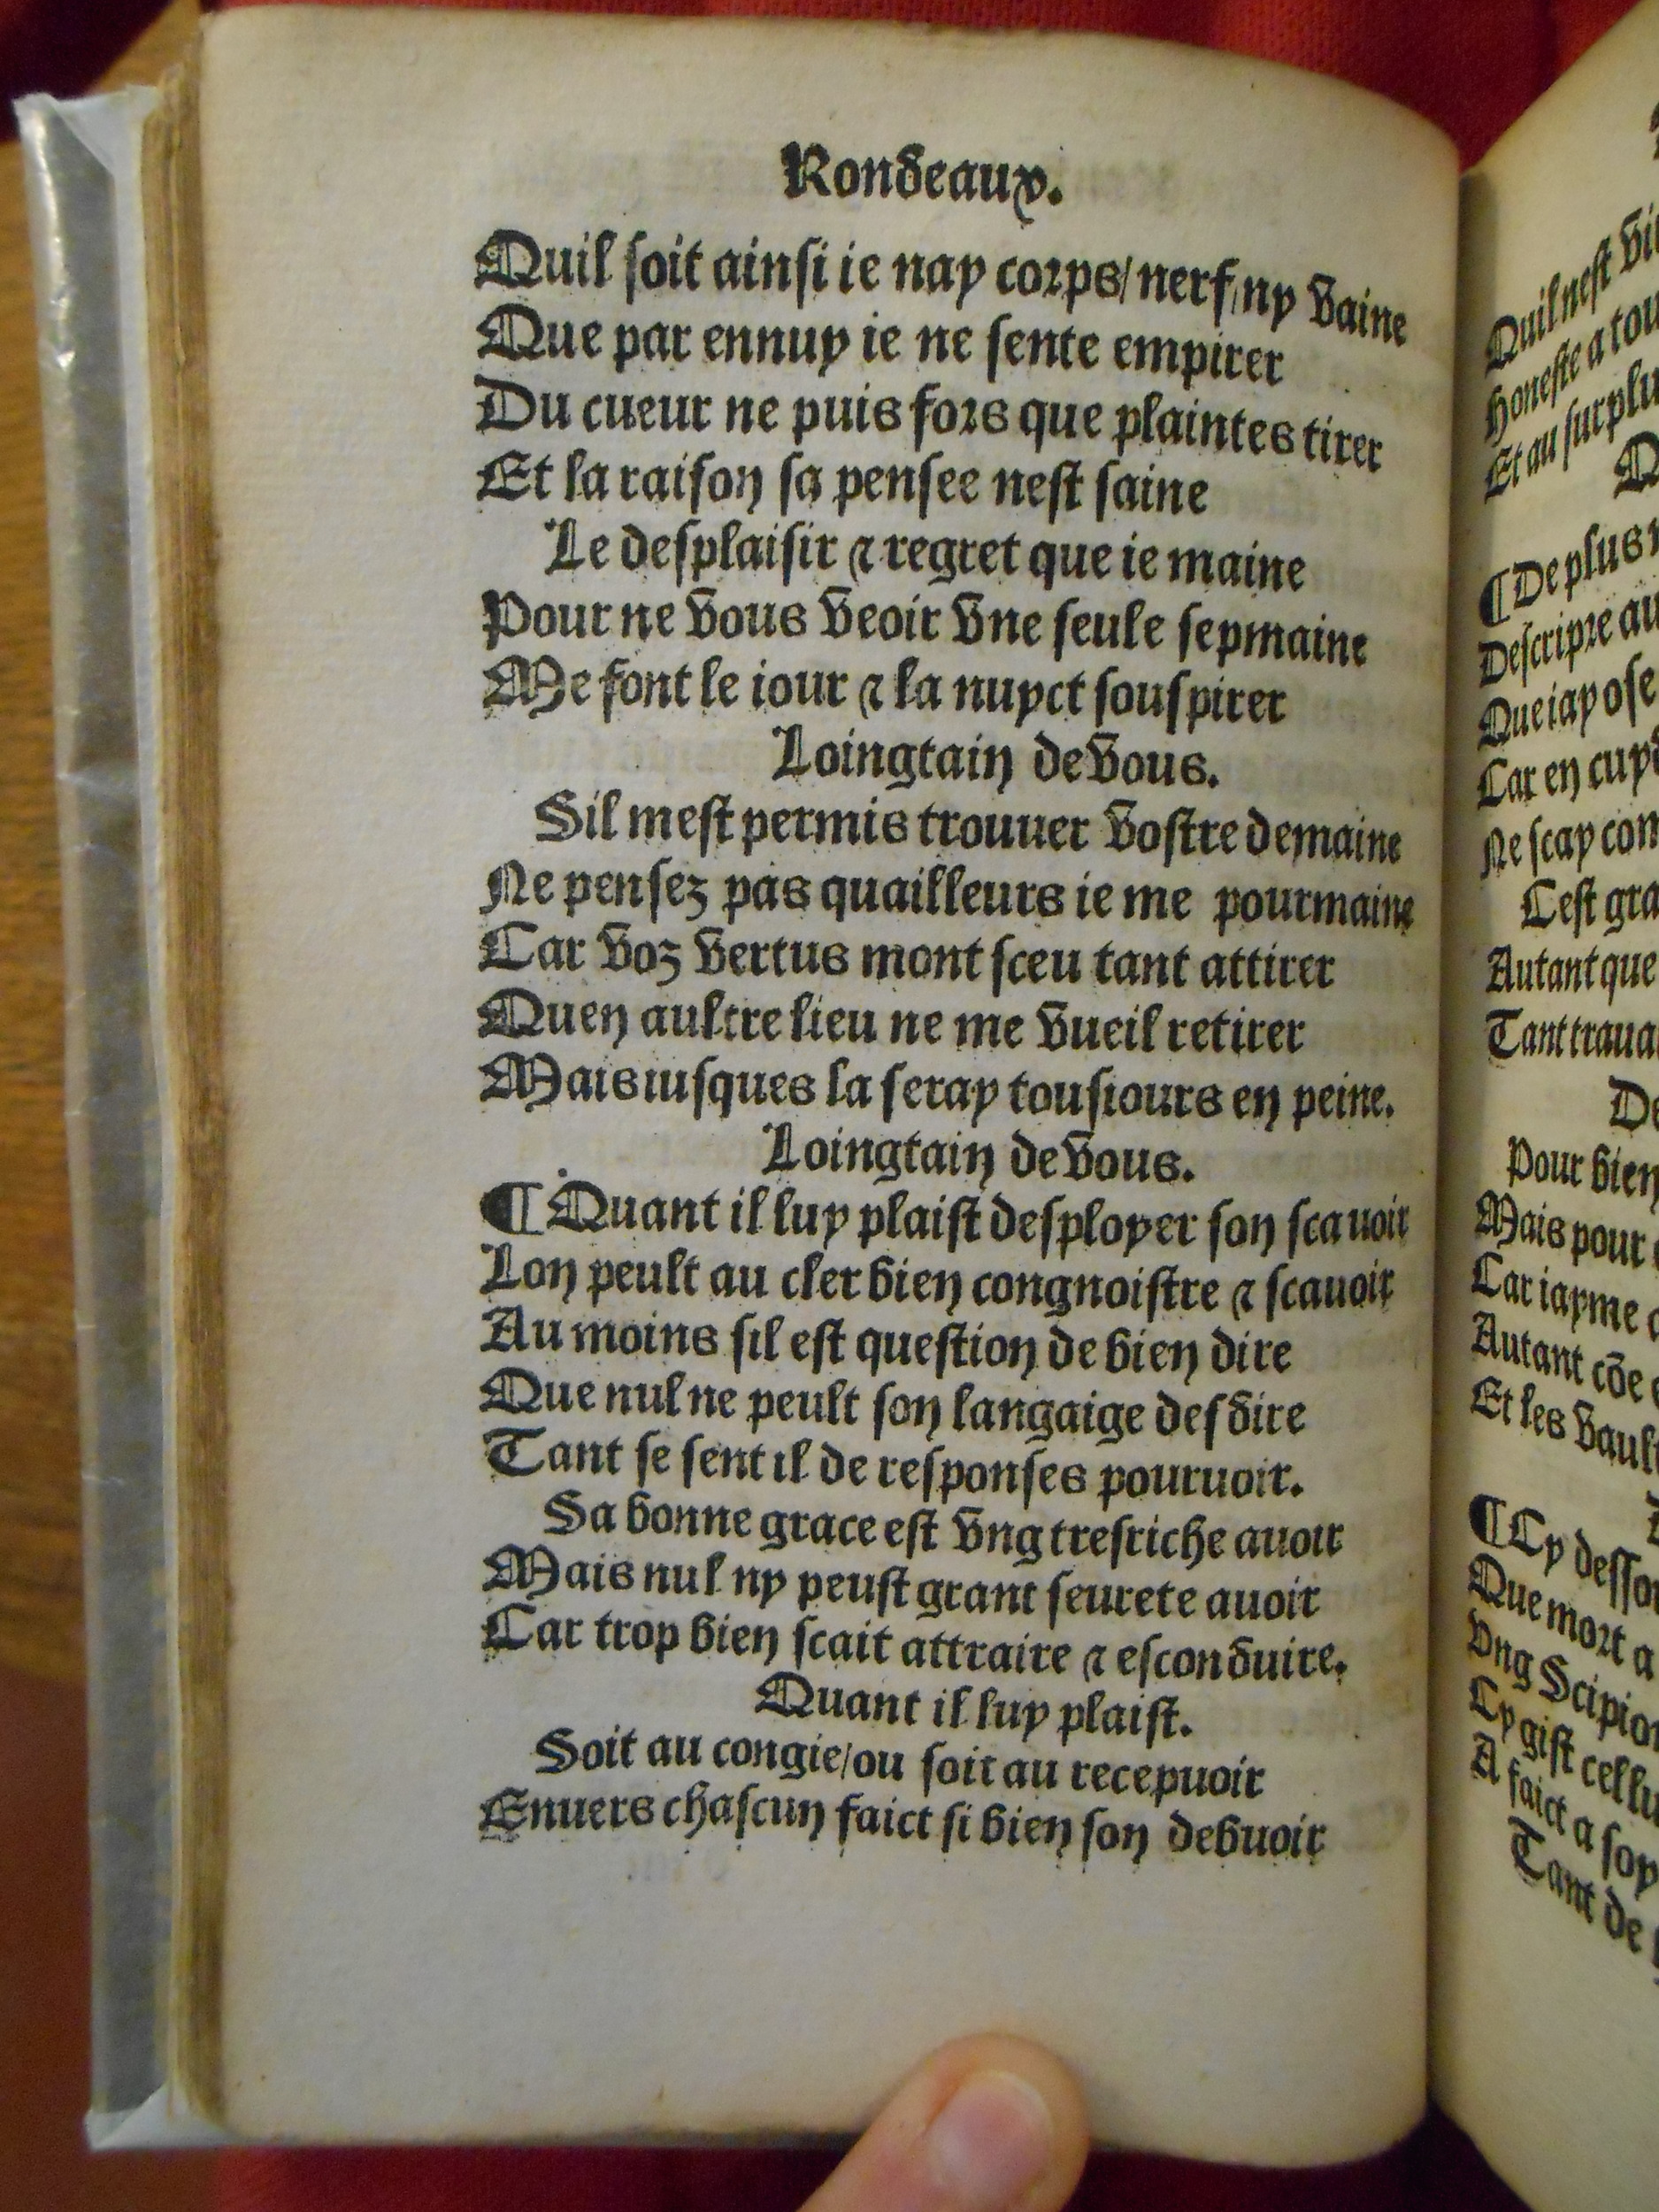 Rondeaux.
Quil soit ainsi ie nay corps/ nerf/ ny vaine
Que par ennuy ie ne sente empirer
Du cueur ne puis fors que plaintes tirer
Et la raison sa pensee nest saine
Le desplaisir & regret que ie maine
Pour ne vous veoir vne seule sepmaine
Me font le iour & la nuyct souspirer
Loingtain de vous.
Sil mest permis trouuer vostre demaine
Ne pensez pas quailleurs ie me pourmaine
Car voz vertus mont sceu tant attirer
Quen aultre lieu ne me vueil retirer
Mais iusques la seray tousiours en peine.
Loingtain de vous.
¶ Quant il luy plaist desployer son scauoir
Lon peult au cler bien congnoistre & scauoir
Au moins sil est question de bien dire
Que nul ne peult son langaige desdire
Tant se sent il de responses pouruoir.
Sa bonne grace est vng tresriche auoir
Mais nul ny peust grant seurete auoir
Car trop bien scait attraire & esconduire.
Quant il luy plaist.
Soit au congie/ ou soit au recepuoir
Enuers chascun faict si bien son debuoir
Quil nest
Honeste a tou
Et au surplu
¶ De plus
Descripre au
Que iay ose
Car en cupd
Ne scay com
Cest gra
Autant que
Tant traua
De
Pour bien
Mais pour
Car iayme
Autant cõe
Et les vaul
¶ Cy dessou
Que mort a
Vng Scipion
Cy gist cellu
A faict a soy
Tant de